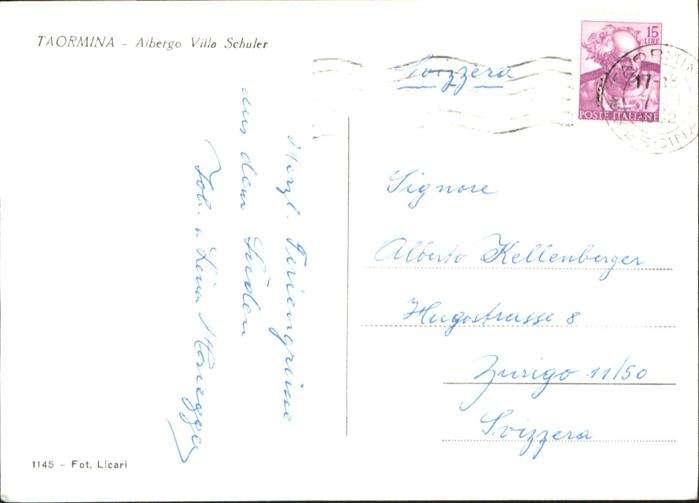 TAORMINA - Albergo Villa Schuler
15
LIRE
POSTE ITALIANE
Svizzera
Herzl. Feriengrüsse
aus dem Süden
Joh. u. Lina Honegger
Signore
Alberto Kellenberger
Hugostrasse 8
Zurigo 11/50
Svizzera
1145 - Fot. Licari